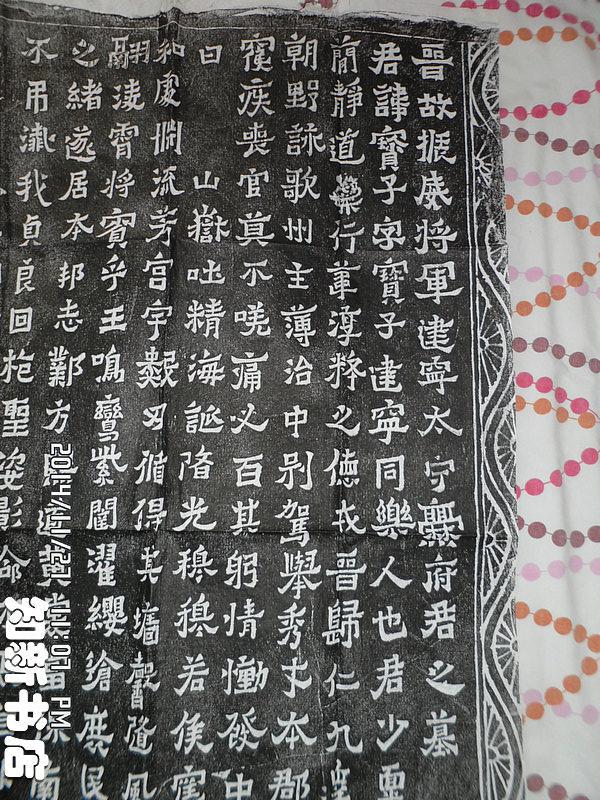 晉故振威將軍建寧太守爨府君之墓
君諱寶子字寶子建寧同樂人也君少稟
簡靜道兼行葦淳粹之德戎晉歸仁九皋
朝野詠歌州主薄治中別駕舉秀才本郡
寢疾喪官莫不嗟痛人百其躬情慟發中
曰
山嶽吐精海誕陼光穆穆君侯震
和處淵流芳宮宇數仞循得其墻馨隨風
翮淩霄將賓乎王鳴鸞紫闥濯纓滄庶民
之緒遂居本邦志鄴方熙道隆黃裳當保南
不吊殲我貞良回抱聖姿影命不
2014/10/23 11:07 PM
知新书店